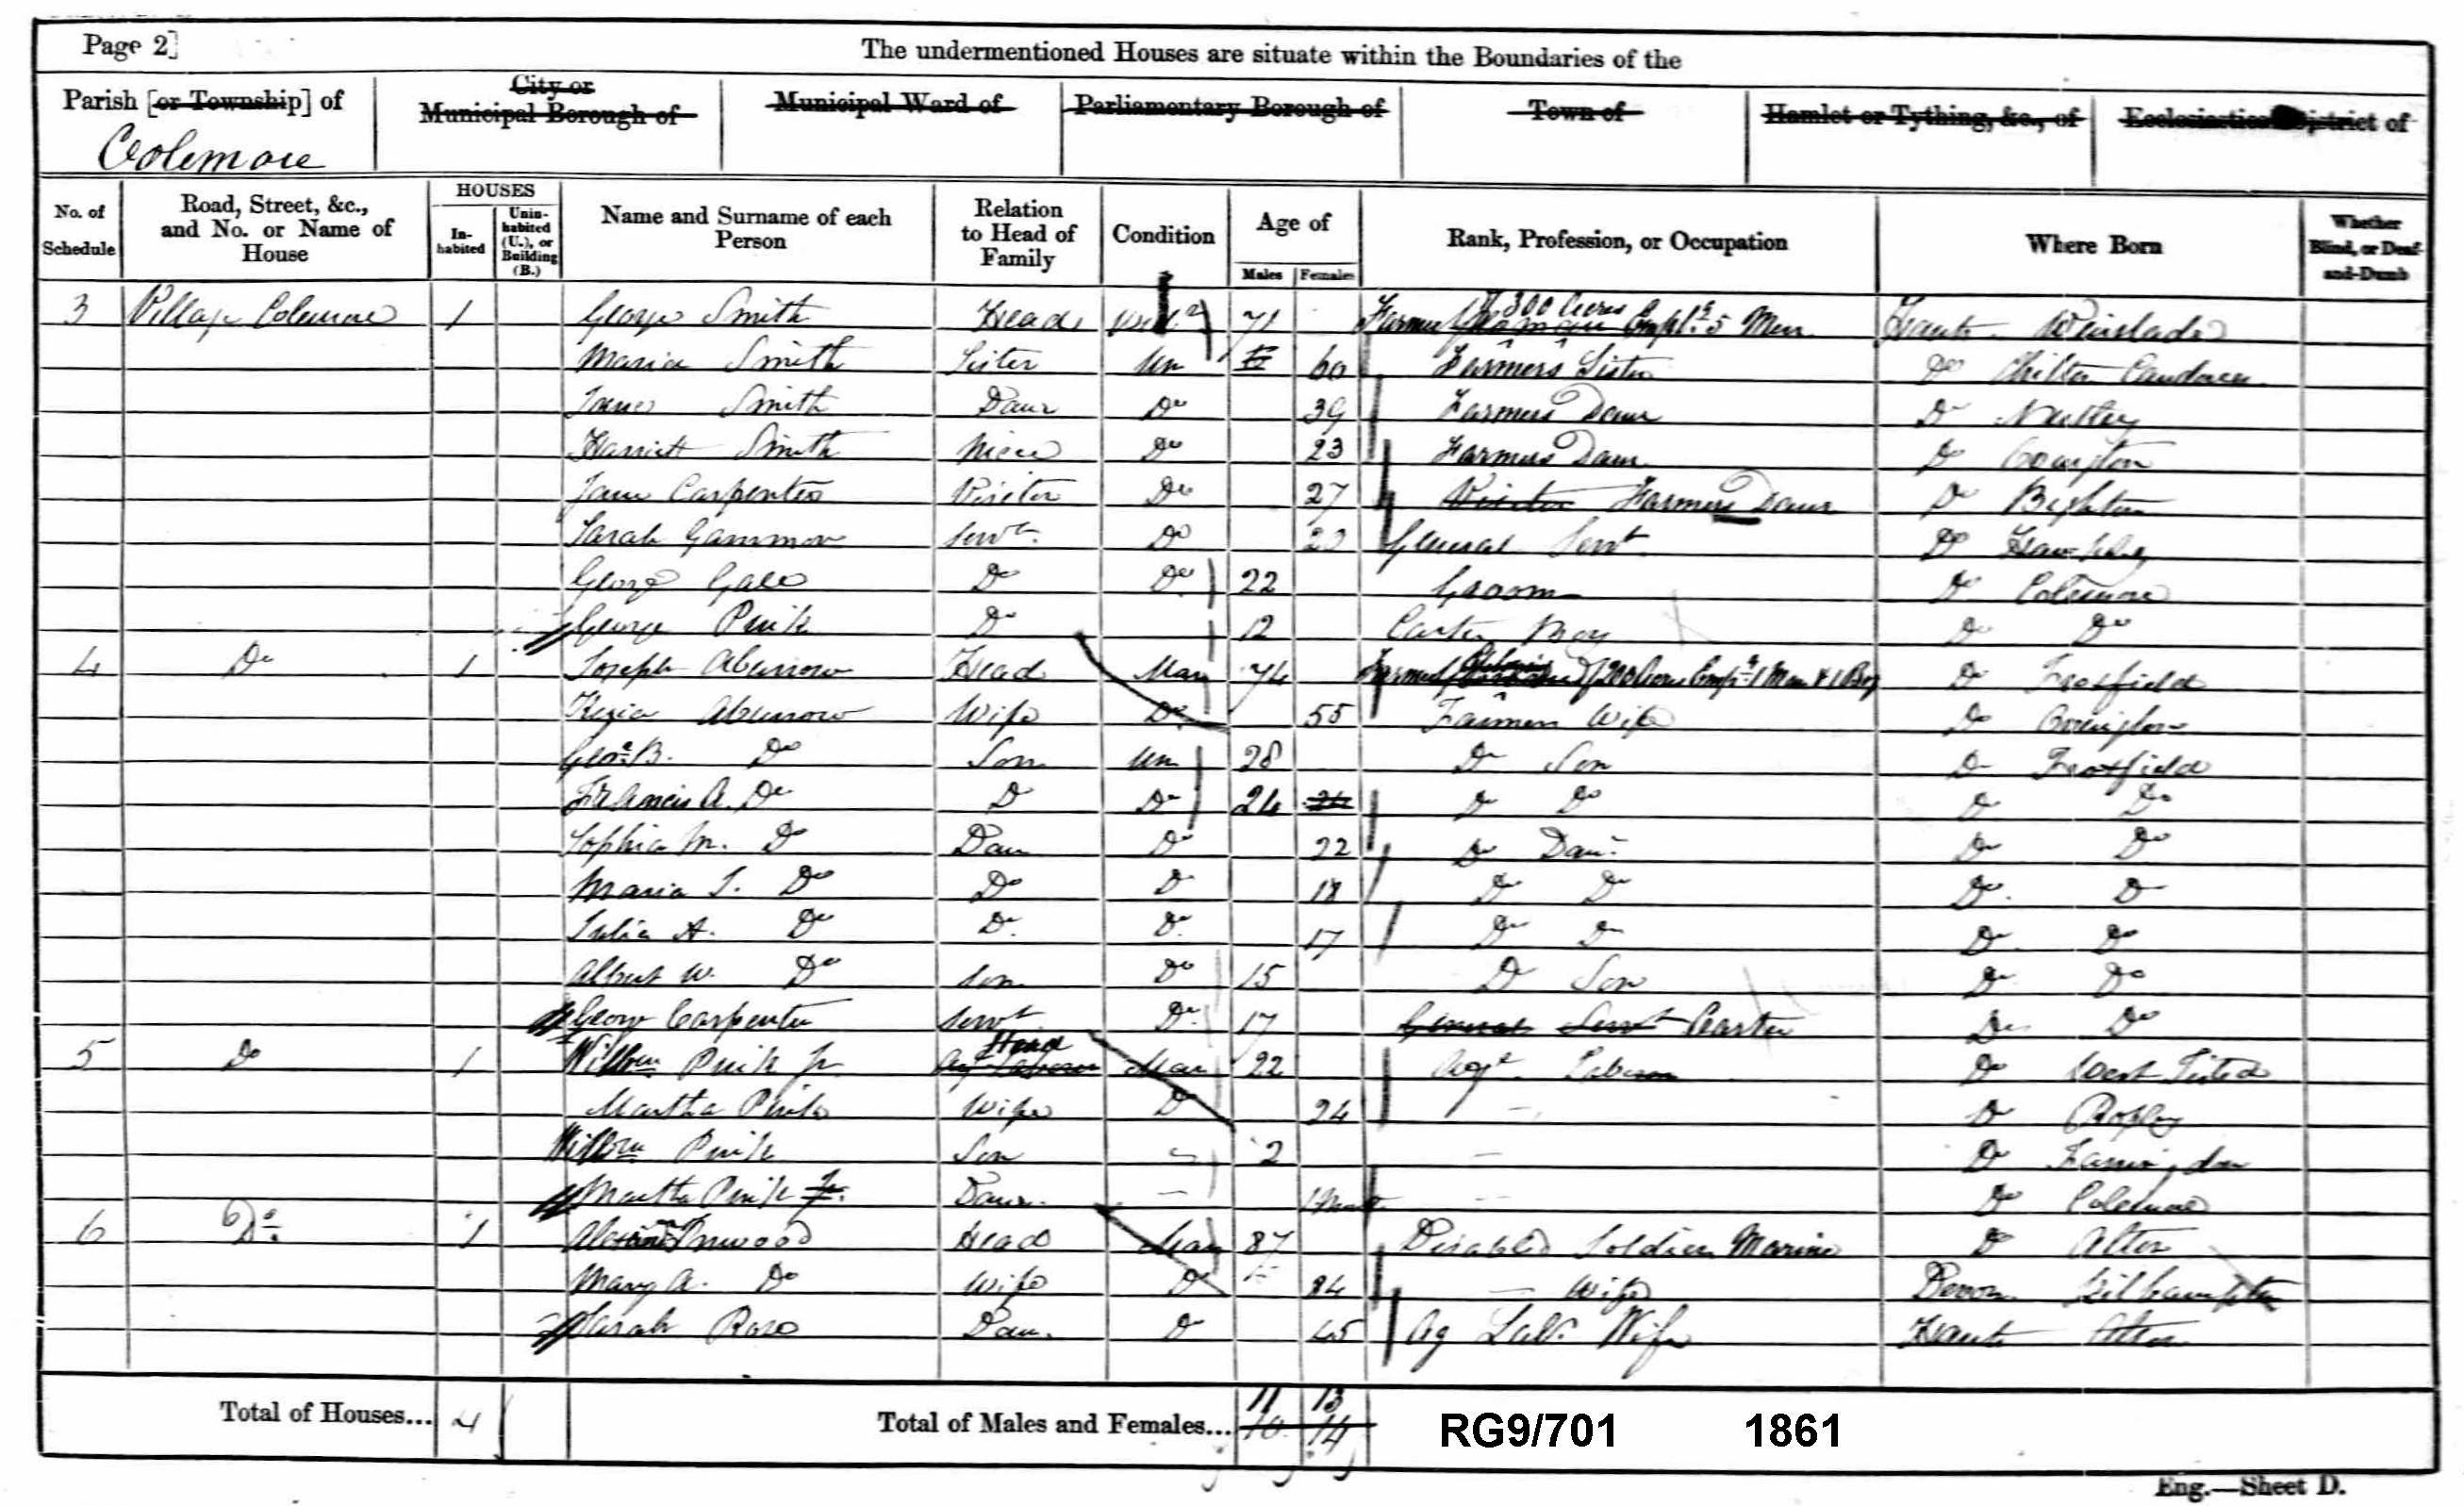 Page 2]
The undermentioned Houses are situate within the Boundaries of the
Parish [or Township] of
City or
Municipal Borough of
Municipal Ward of
Parliamentary Borough of
Town of
Hamlet or Tything, &c., of
Ecclesiastical District of
Colemore
No. of Schedule
Road, Street, &c., and No. or Name of House
HOUSES
In-habited
Unin-habited (U.), or Building (B.)
Name and Surname of each Person
Relation to Head of Family
Condition
Age of
Males Females
Rank, Profession, or Occupation
Where Born
Whether Blind, or Deaf-and-Dumb
3 Village Colemore 1 George Smith Head 71 Farmer 300 Acres Empl.g 5 Men Hants Winslade
Maria Smith Sister Un 60 Farmers Sister Do Chilton Candover
Jane Smith Daur Do 39 Farmers Daur Do Nutley
Harriett Smith Niece Do 23 Farmers Daur Do Compton
Jane Carpenter Visitor Do 27 Visitor Farmers Daur Do Bighton
Sarah Gammon Servt. Do General Servt Do Hawkley
George Gale Do Do 22 Groom Do Colemore
George Pink Do 12 Carter Boy Do Do
4 Do 1 Joseph Aburrow Head Mar 74 Farmer of 200 Acres Empg 1 Man & 1 Boy Do Froxfield
Kezia Aburrow Wife Do 55 Farmers Wife Do
Geo. B. Do Son Un 28 Do Son Do Froxfield
Francis A. Do D Do 24 24 Do Do Do Do
Sophia M. Do Dau Do 22 Do Daur Do Do
Maria S. Do Do D 18 Do Do Do D
Julia A. Do D. D. 17 Do Do Do Do
Albert W. Do Son Do 15 D Son Do Do
George Carpenter Servt Do 17 General Servt Carter Do Do
5 Do 1 William Pink Jr Ag Laborer Head Mar 22 Agl. Laborer Do West Tisted
Martha Pink Wife D 24 — Do Ropley
William Pink Son — 2 — Do Farringdon
Martha Pink Jr. Daur. — 1 Month — Do Colemore
6 Do 1 Inwood Head Mar 87 Disabled Soldier Marine D Alton
Mary A. Do Wife D 84 — Wife Devon
Sarah Rose Dau. D 45 Ag Lab. Wife Hants Alton
Total of Houses... 4
Total of Males and Females... 11 13
10 14
RG9/701 1861
Eng.—Sheet D.